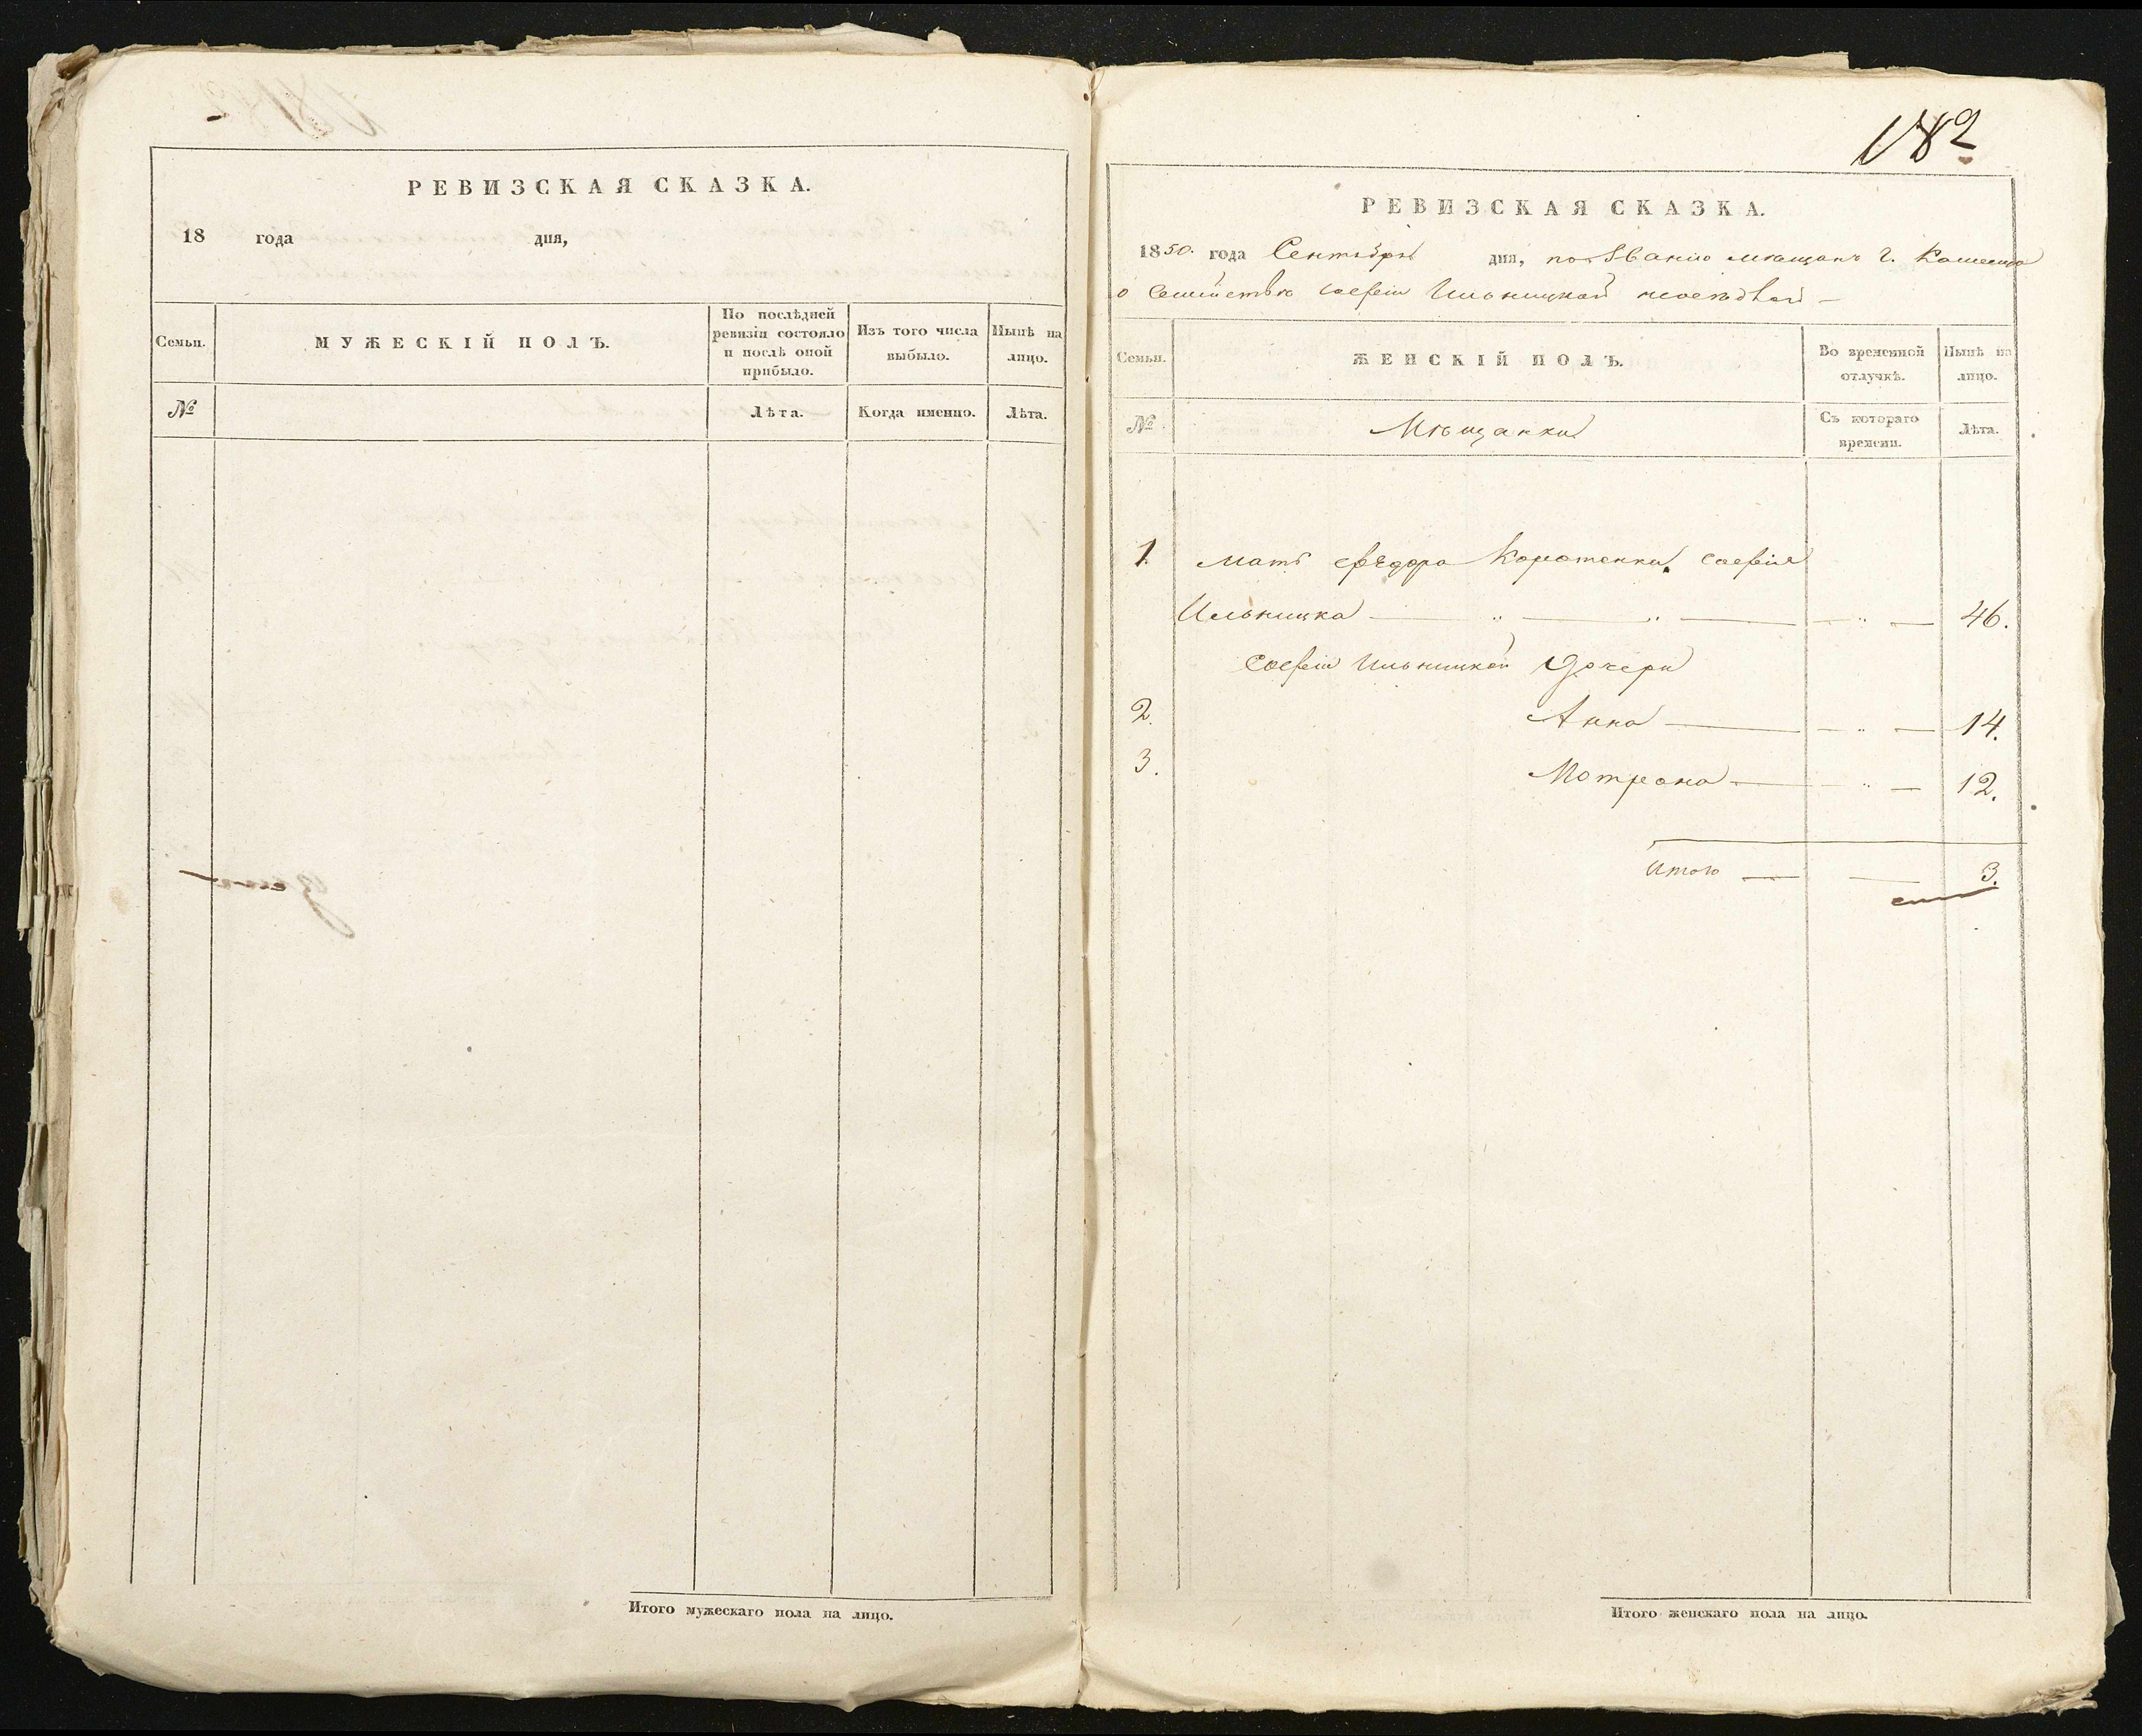 РЕВИЗСКАЯ СКАЗКА.
18 года дня,
Семьи.
МУЖЕСКІЙ ПОЛЪ.
По послѣдней
ревизіи состояло
и послѣ оной
прибыло.
Изъ того числа
выбыло.
Нынѣ на
лицо.
№
Лѣта.
Когда именно.
Лѣта.
Итого мужескаго пола на лицо.
182
РЕВИЗСКАЯ СКАЗКА.
1850. года Сентября дня, по званию мѣщанъ г.
о Семействѣ Софіи Ильницкой
Семьи.
ЖЕНСКІЙ ПОЛЪ.
Во временной
отлучкѣ.
Нынѣ на
лицо.
№
Мѣщанки
Съ котораго
времени.
Лѣта.
1. Мать Ѳедора Коротенка Софія
Ильницка — „ — „ — — „ — 46.
Софіи Ильницкой дочери
2. Анна — — „ — 14.
3. Мотрона — — „ — 12.
Итого — — 3.
Итого женскаго пола на лицо.